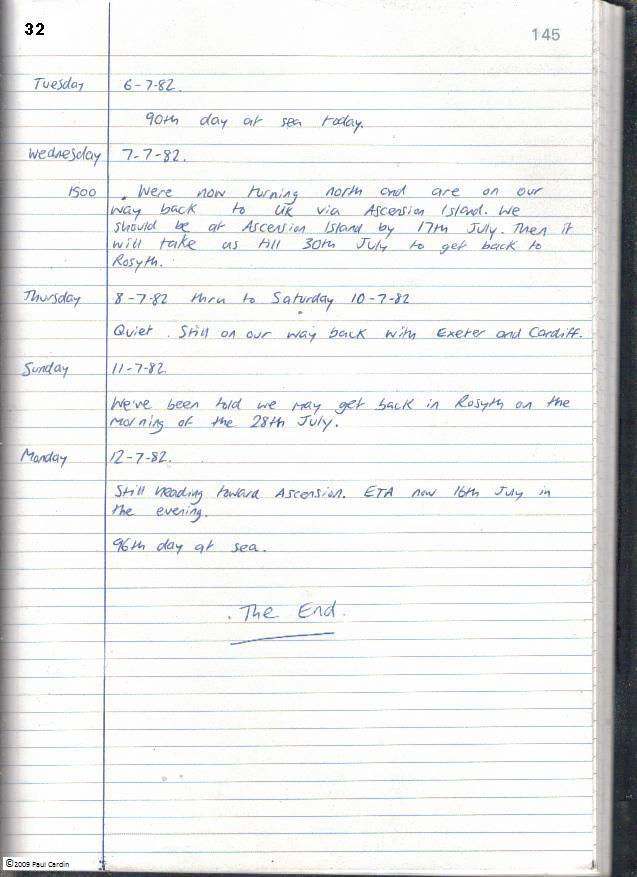 32
145
Tuesday 6-7-82.
90th day at sea today.
Wednesday 7-7-82.
1500 . Were now turning north and are on our
way back to UK via Ascension Island. We
should be at Ascension Island by 17th July. Then it
will take us till 30th July to get back to
Rosyth.
Thursday 8-7-82 thru to Saturday 10-7-82
Quiet. Still on our way back with Exeter and Cardiff.
Sunday 11-7-82
We've been told we may get back in Rosyth on the
morning of the 28th July.
Monday 12-7-82.
Still heading toward Ascension. ETA now 16th July in
the evening.
96th day at sea.
. The End.
©2009 Paul Cardin